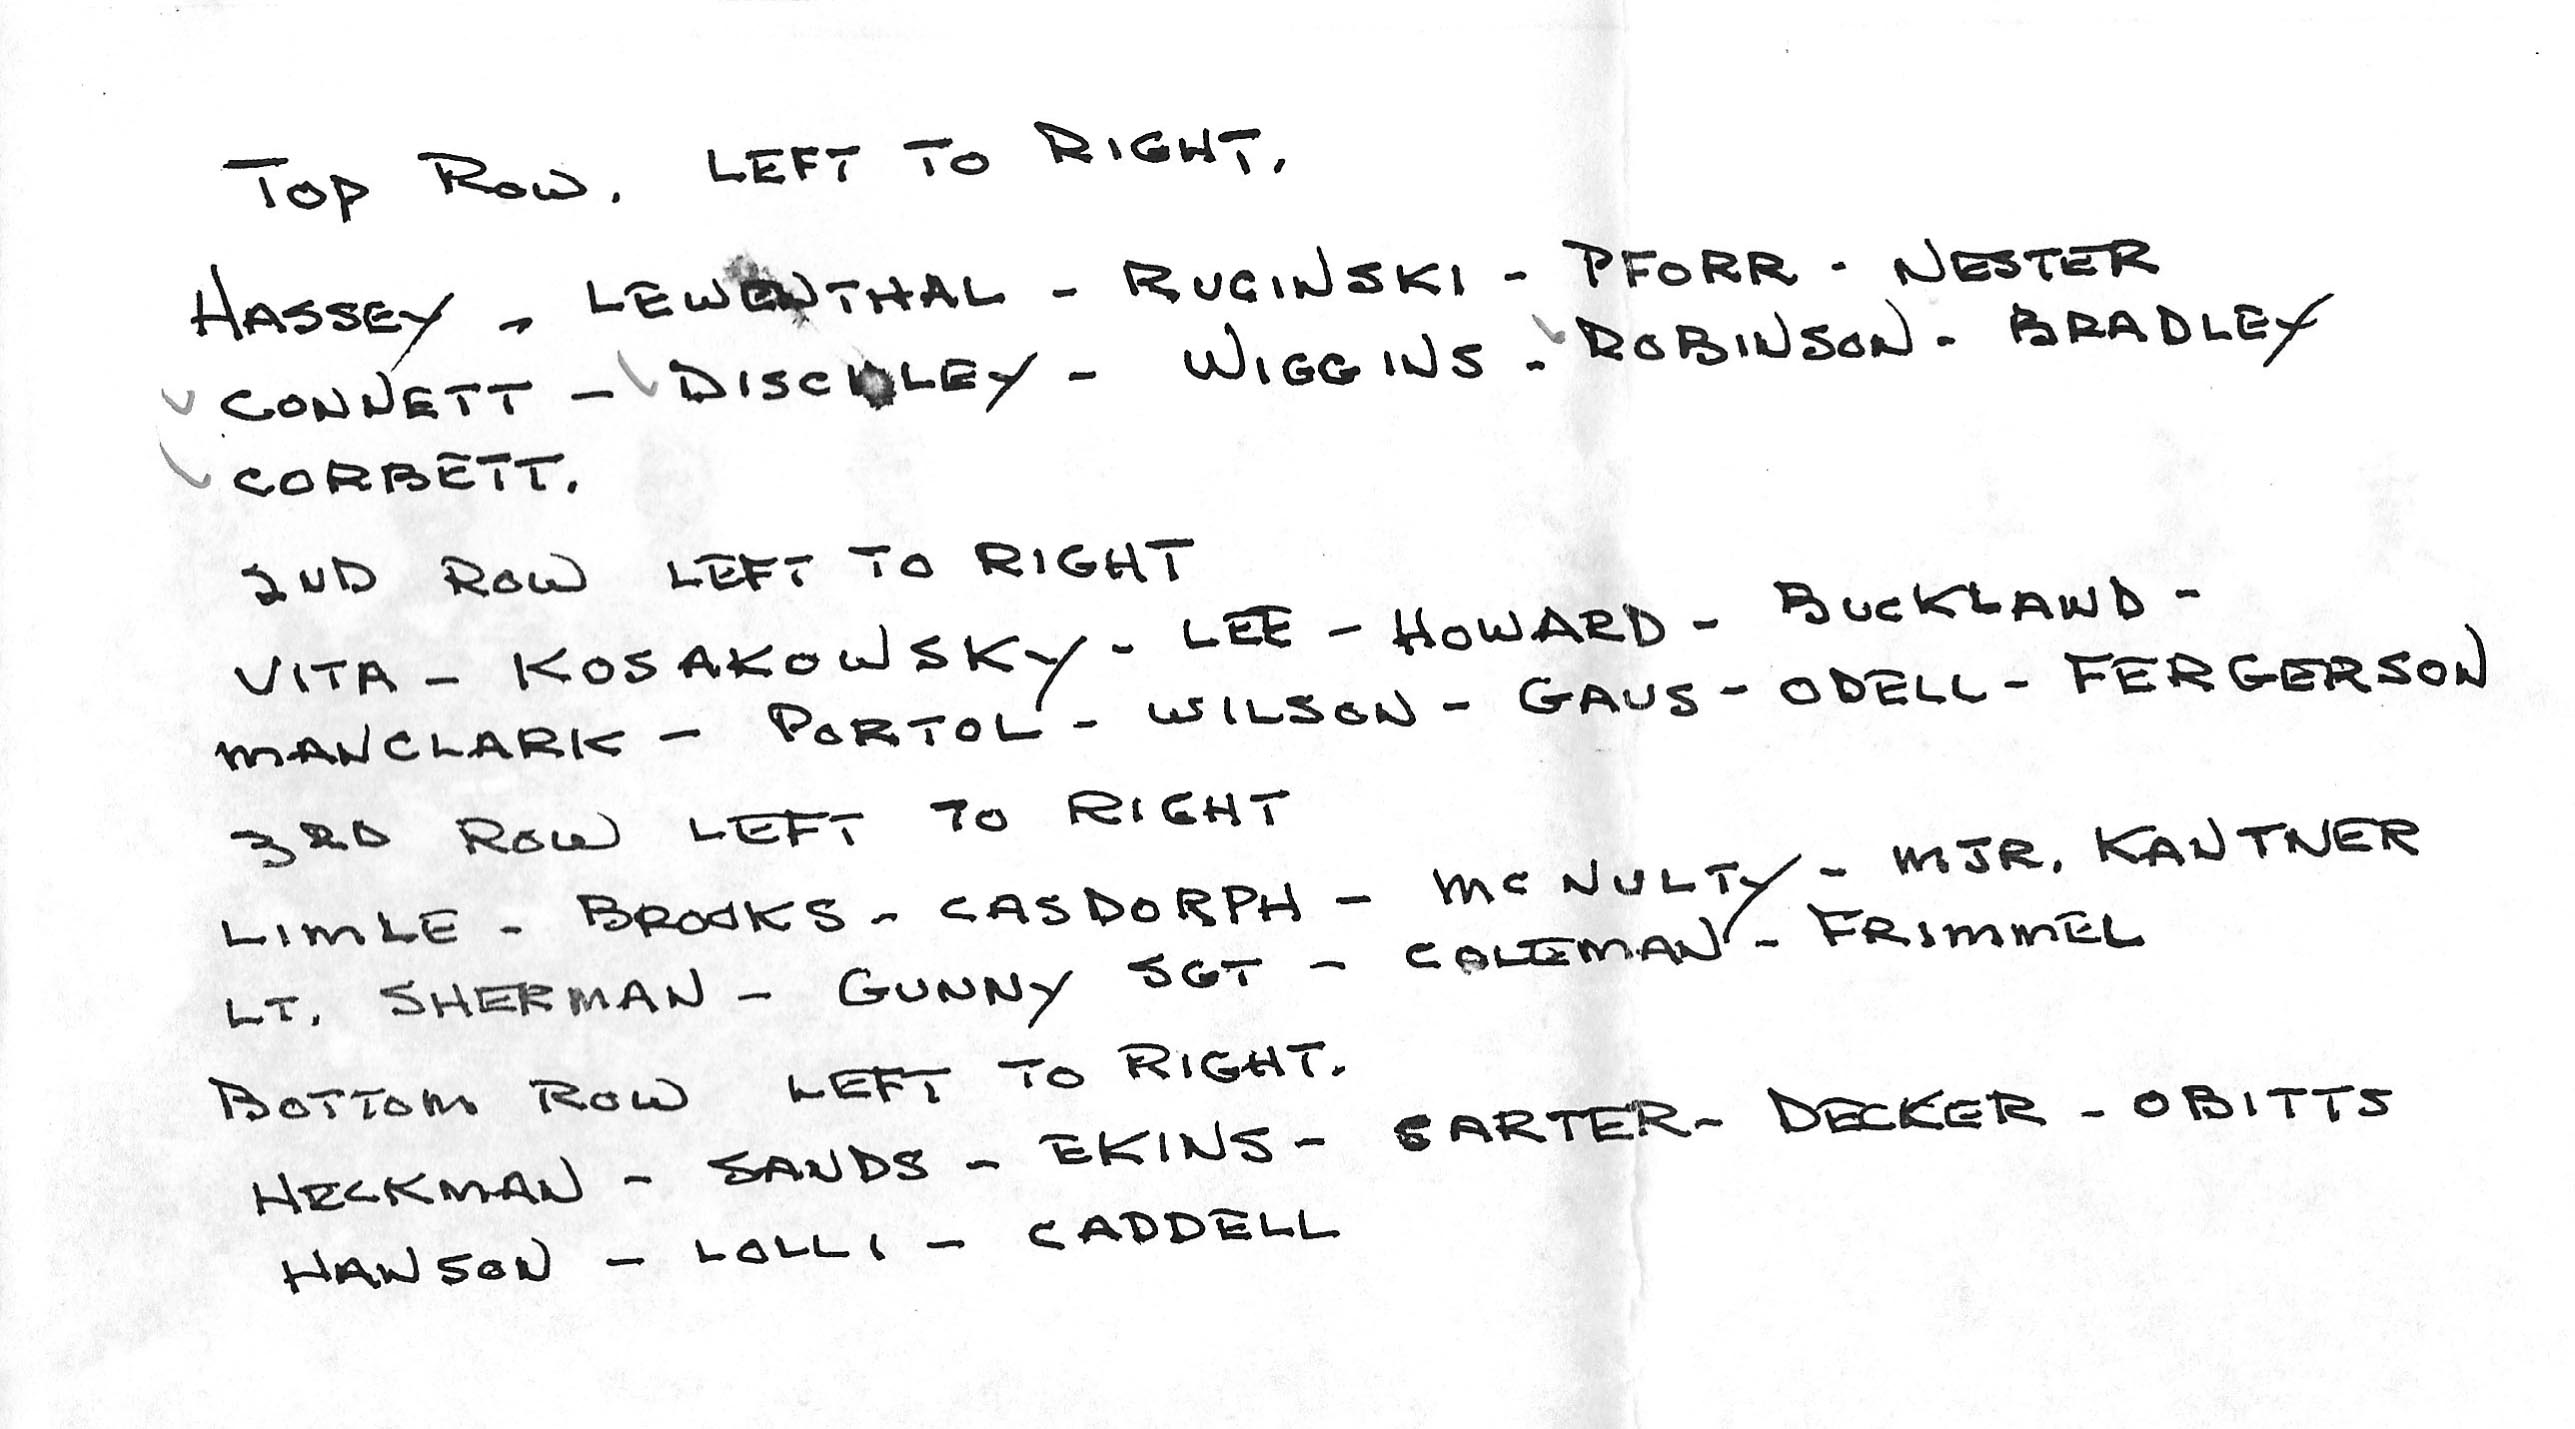 Top Row. LEFT TO RIGHT.
HASSEY - LEWENTHAL - RUGINSKI - PFORR - NESTER
CONNETT - WIGGINS - ROBINSON - BRADLEY
CORBETT.
2ND ROW LEFT TO RIGHT
VITA - KOSAKOWSKY - LEE - HOWARD - BUCKLAND -
MANCLARK - PORTOL - WILSON - GAUS - ODELL - FERGERSON
3RD ROW LEFT TO RIGHT
LIMLE - BROOKS - CASDORPH - MC NULTY - MJR. KANTNER
LT. SHERMAN - GUNNY SGT - COLEMAN - FRIMMEL
BOTTOM ROW LEFT TO RIGHT.
HECKMAN - SANDS - EKINS - CARTER - DECKER - OBITTS
HANSON - LOLLI - CADDELL